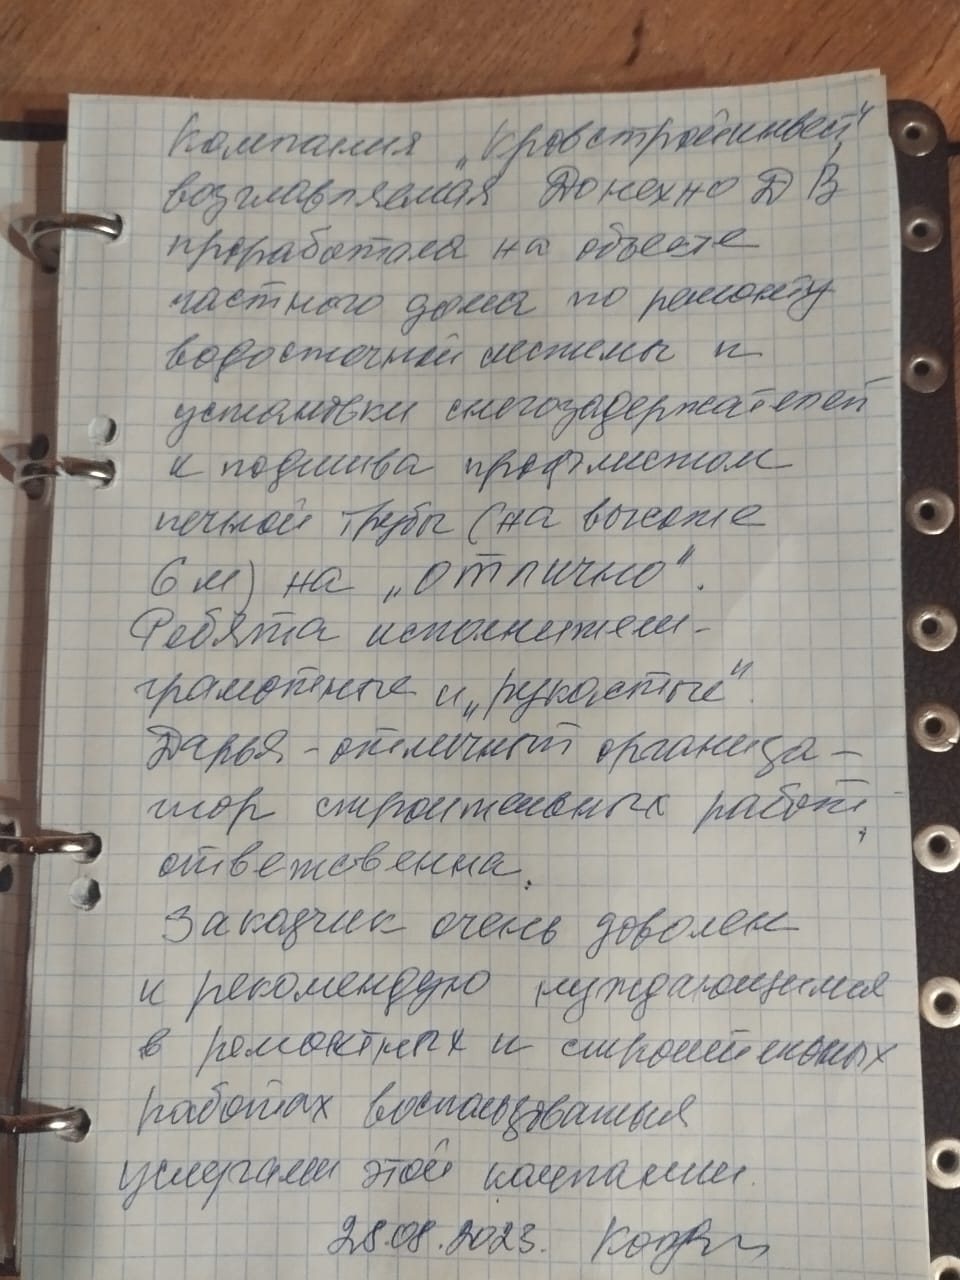 Компания „Кровстройинвест"
возглавляемая Донехно Д В,
проработала на объекте
частного дома по ремонту
водосточной системы и
установки снегозадержателей
и подшива профлистом
печной трубы (на высоте
6 м) на „отлично".
Ребята исполнители-
грамотные и „рукастые".
Дарья - отличный организа-
тор строительных работ,
ответственна.
Заказчик очень доволен
и рекомендую нуждающимся
в ремонтных и строительных
работах воспользоваться
услугами этой компании.
28.08.2023.